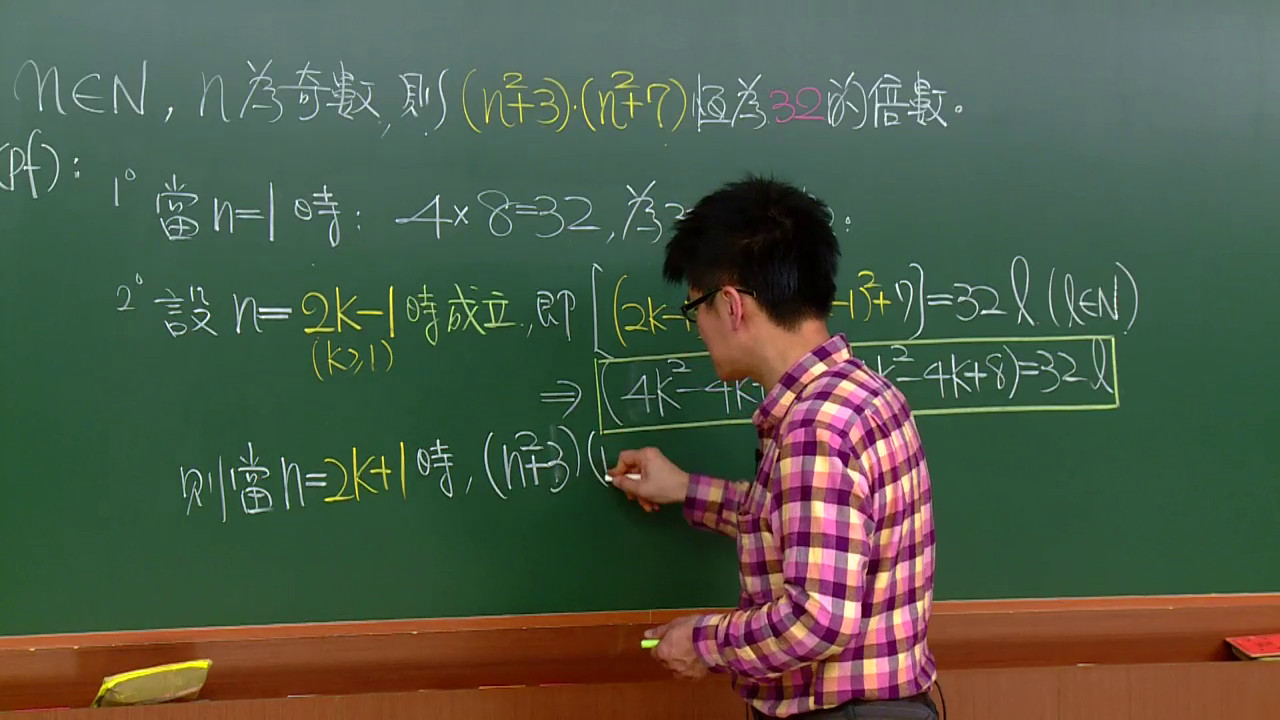 n∈N, n為奇數,則(n²+3)·(n²+7)恆為32的倍數。
(pf): 1° 當n=1時: 4×8=32,為3
2° 設n=2k-1時成立,即[(2k-1)²+7]=32l (l∈N)
(k≥1)
⇒ (4k²-4k k²-4k+8)=32l
則當n=2k+1時, (n²+3)(